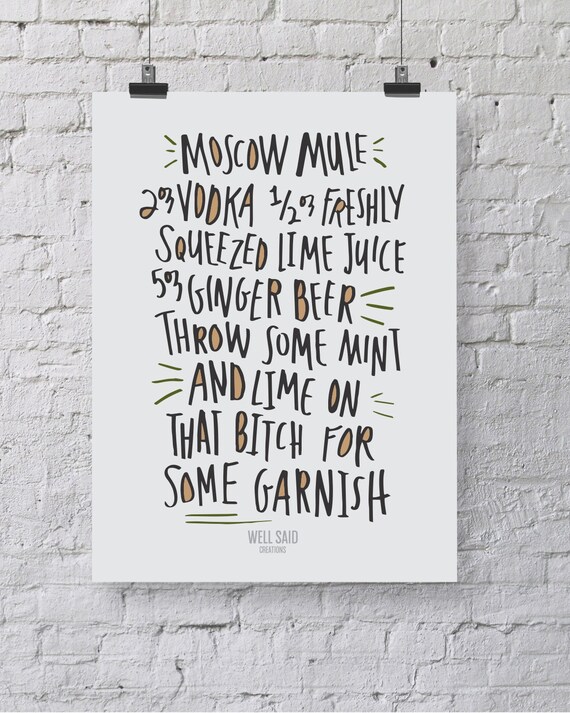 MOSCOW MULE
2oz VODKA 1/2oz FRESHLY
SQUEEZED LIME JUICE
5oz GINGER BEER
THROW SOME MINT
AND LIME ON
THAT BITCH FOR
SOME GARNISH
WELL SAID
CREATIONS